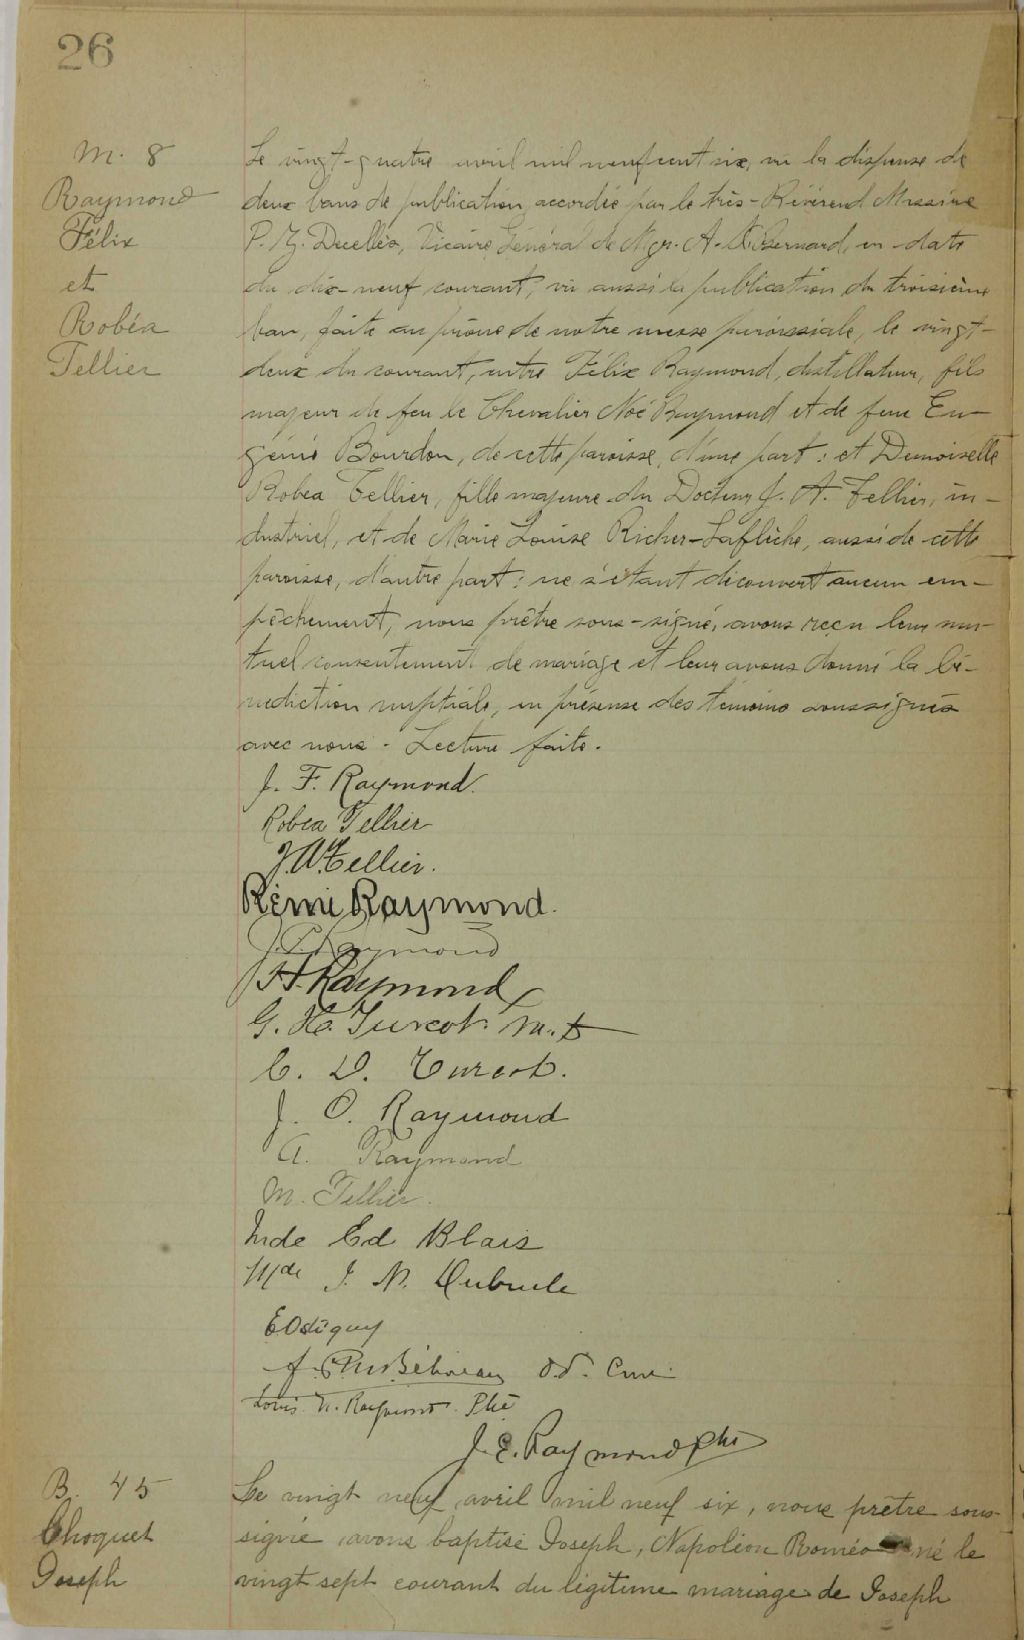 26
M. 8
Raymond
Félix
et
Robéa
Tellier
Le vingt-quatre avril mil neuf cent six, vu la dispense de
deux bans de publication accordée par le très-Révérend Messire
P. Z. Decelles, Vicaire Général de Mgr. A. X. Bernard, en date
du dix-neuf courant; vu aussi la publication du troisième
ban, faite au prône de notre messe paroissiale, le vingt-
deux du courant, entre Félix Raymond, distillateur, fils
majeur de feu le Chevalier Noé Raymond et de feue Eu-
génie Bourdon, de cette paroisse, d'une part; et Demoiselle
Robea Tellier, fille majeure du Docteur J. A. Tellier, in-
dustriel, et de Marie Louise Richer-Laflèche, aussi de cette
paroisse, d'autre part; ne s'étant découvert aucun em-
pêchement, nous prêtre sous-signé, avons reçu leur mu-
tuel consentement de mariage et leur avons donné la bé-
nédiction nuptiale, en présence des témoins soussignés
avec nous. Lecture faite.
J. F. Raymond.
Robea Tellier
J. A. Tellier.
Rémi Raymond.
Raymond
H. Raymond
G. H. Turcot
C. D. Turcot.
J. O. Raymond
A. Raymond
M. Tellier.
Mde Ed Blais
Mde J. N. Dubrule
E Ostiguy
Curé
Louis Raymond Ptre
J. E. Raymond Ptre
B. 45
Choquet
Joseph
Le vingt neuf avril mil neuf six, nous prêtre sous-
signé avons baptisé Joseph, Napoléon Roméo né le
vingt sept courant du légitime mariage de Joseph